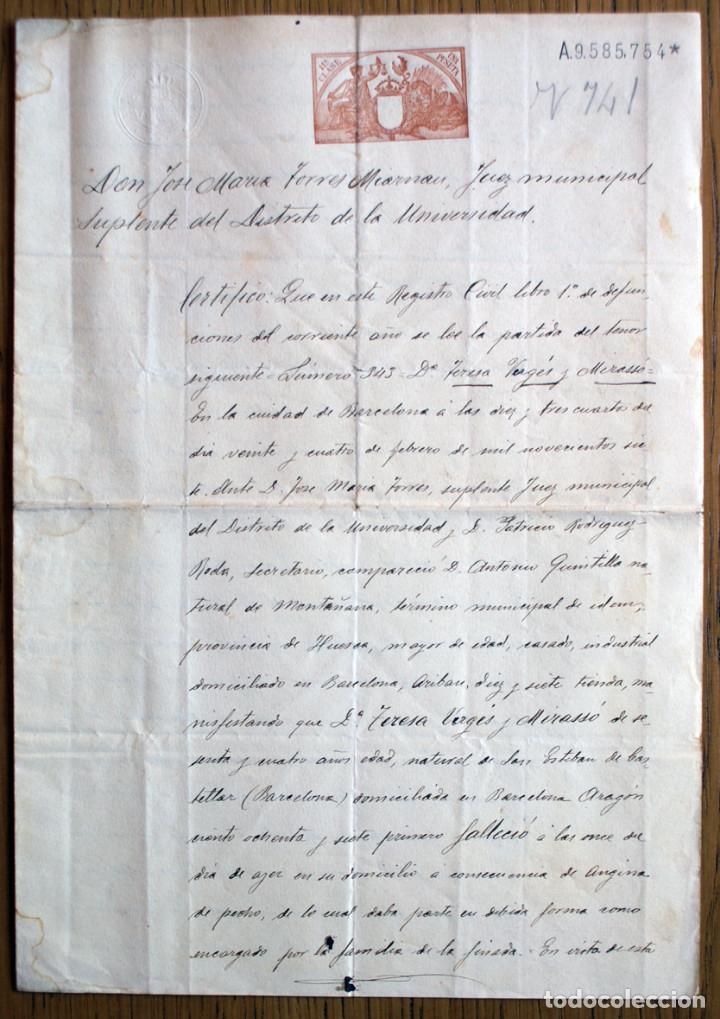 11ª CLASE
UNA PESETA
A.9.585,754*
Nº 741
Don José Maria Torres Miarnau, Juez municipal
suplente del Distrito de la Universidad.
Certifico: Que en este Registro Civil libro 1º. de defun-
ciones del corriente año se lee la partida del tenor
siguiente = Número 343 = Dª Teresa Vergés y Mirassó =
En la ciudad de Barcelona á las diez y tres cuartos del
dia veinte y cuatro de febrero de mil novecientos sie-
te. Ante D. José Maria Torres, suplente Juez municipal
del Distrito de la Universidad y D. Patricio Rodriguez
Roda, Secretario, compareció D. Antonio Quintilla na-
tural de Montañana, término municipal de idem,
provincia de Huesca, mayor de edad, casado, industrial
domiciliado en Barcelona, Aribau, diez y siete tienda, ma-
nifestando que Dª. Teresa Vergés y Mirassó de se-
senta y cuatro años edad, natural de San Esteban de Cas-
tellar (Barcelona) domiciliada en Barcelona Aragón
ciento ochenta y siete primero falleció á las once del
dia de ayer en su domicilio á consecuencia de Angina
de pecho, de lo cual daba parte en debida forma como
encargado por la familia de la finada. = En vista de esta
todocoleccion